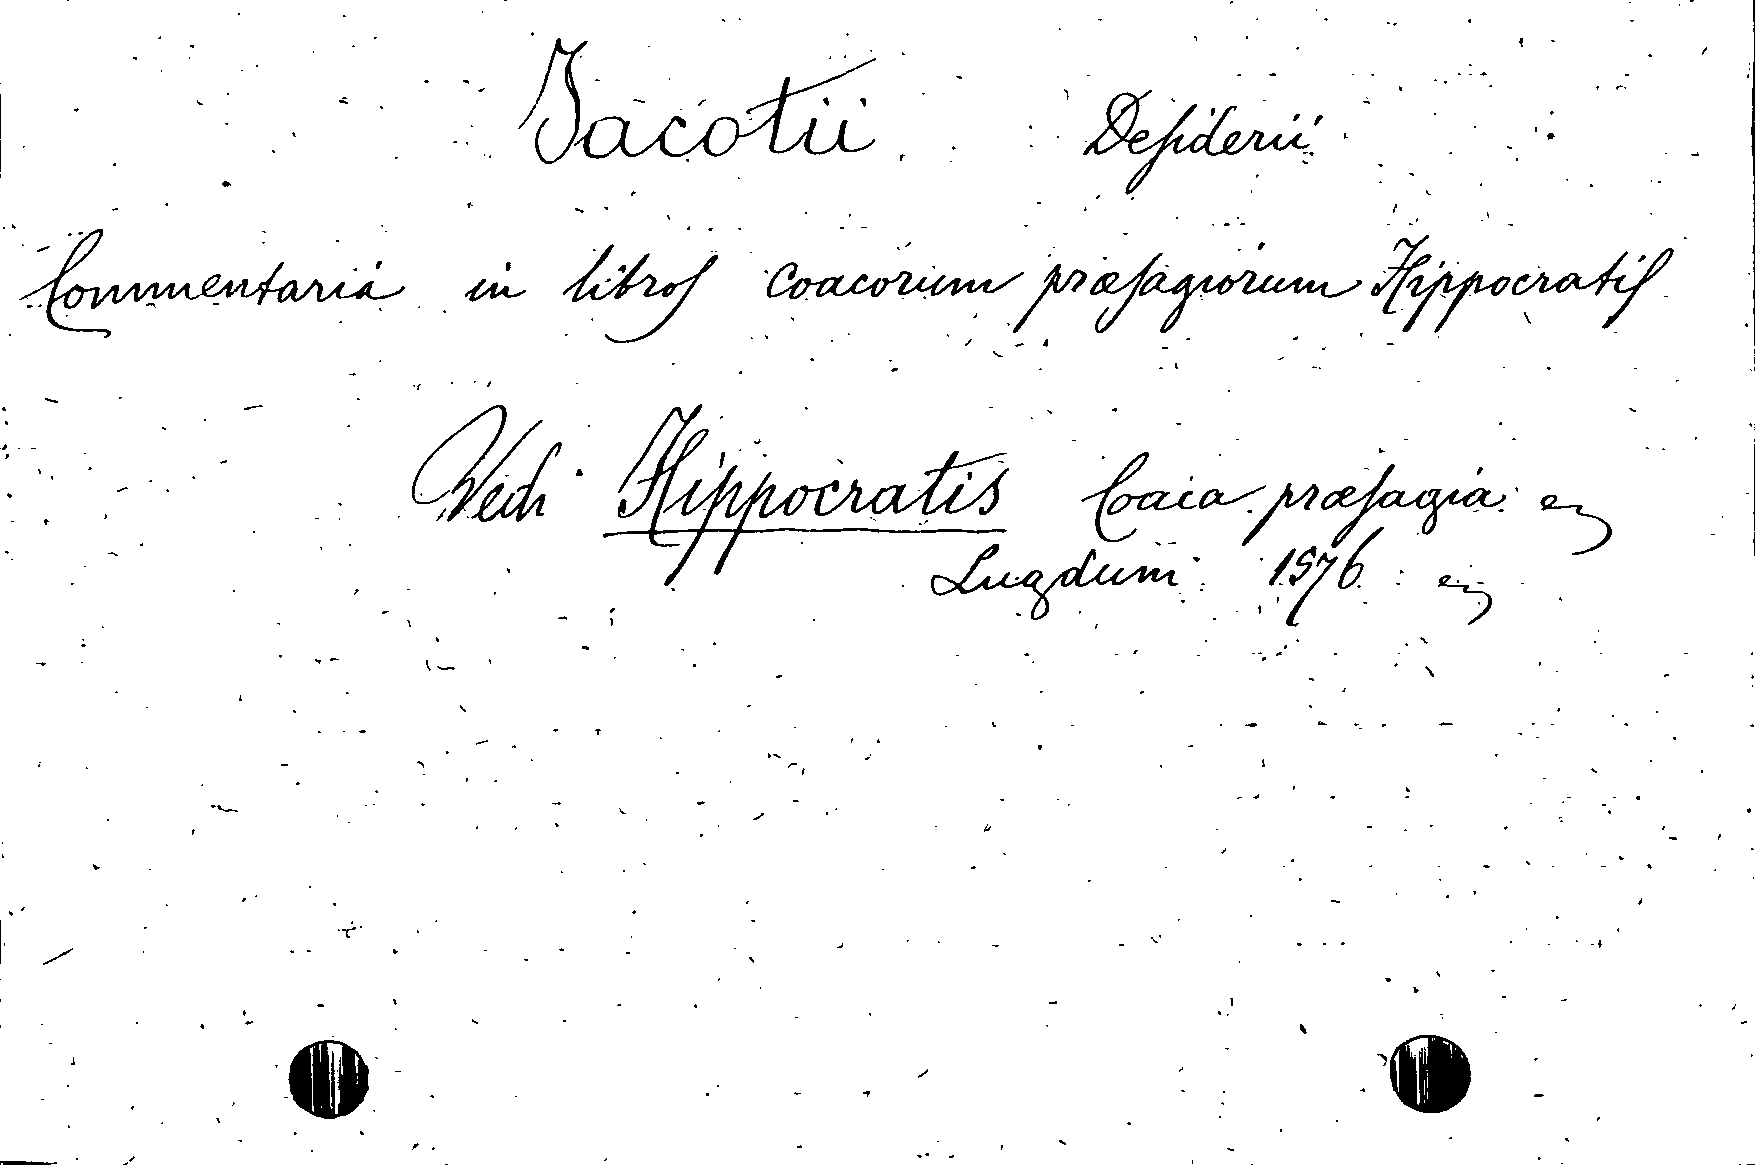 Jacotii Deſiderii
Commentaria in libroſ coacorum præſagiorum Hippocratiſ
Vedi Hippocratis Coaca præſagia
Lugduni 1576